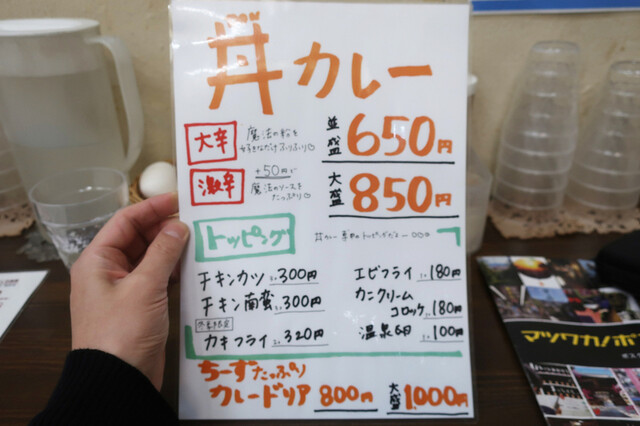 丼カレー
大辛
魔法の粉を
お好きなだけふりふり♡
並盛 650円
激辛
+50円で
魔法のソースを
たっぷり♡
大盛 850円
トッピング
チキンカツ 300円
チキン南蛮 300円
カキフライ 320円
エビフライ 180円
カニクリーム
コロッケ 180円
温泉玉 100円
ちーずたっぷり
カレードリア 800円 大盛 1000円
マツワカノボ